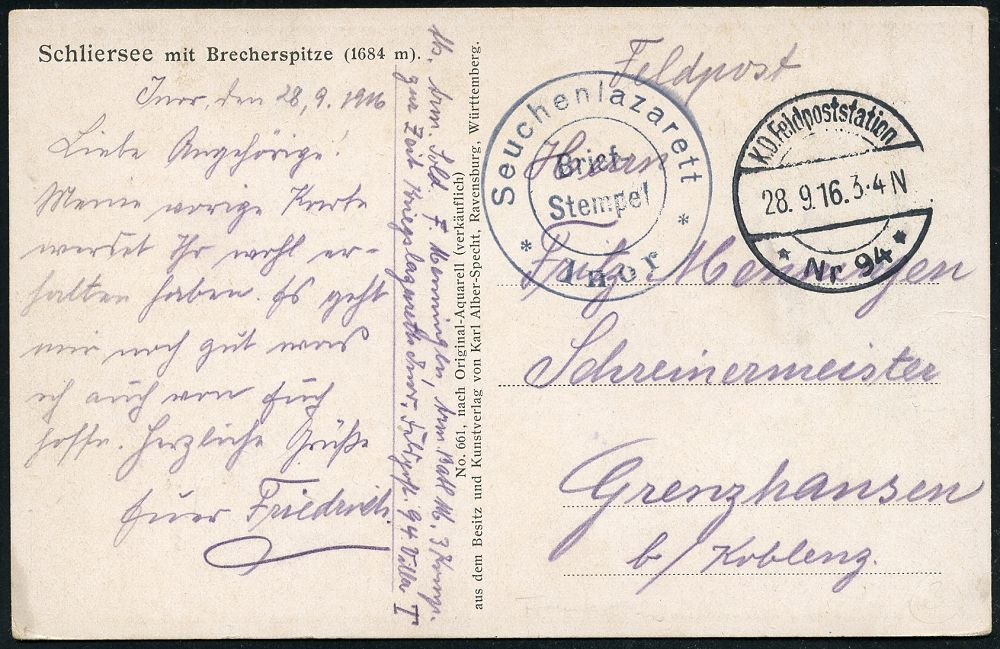 Schliersee mit Brecherspitze (1684 m).
Inor, den 28.9.1916
Liebe Angehörige!
Meine vorige Karte
werdet Ihr wohl er-
halten haben. Es geht
mir noch gut was
ich auch von Euch
hoffe. Herzliche Grüße
Euer Friedrich.
Sold. F.
zur Zeit Kriegslazarett Inor, Feldpost 94 Villa I
No. 661, nach Original-Aquarell (verkäuflich)
aus dem Besitz und Kunstverlag von Karl Alber-Specht, Ravensburg, Württemberg.
Feldpost
Seuchenlazarett
Brief-
Stempel
* Inor *
K.D. Feldpoststation
28. 9. 16. 3-4 N
* Nr 94 *
Herrn
Fritz Menningen
Schreinermeister
Grenzhausen
b/ Koblenz.